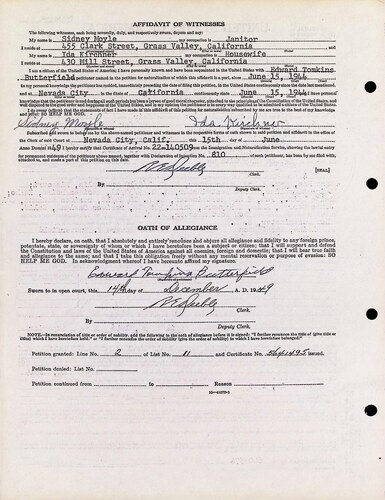 AFFIDAVIT OF WITNESSES
The following witnesses, each being severally, duly, and respectively sworn, depose and say:
My name is Sidney Moyle my occupation is Janitor
I reside at 455 Clark Street, Grass Valley, California
My name is Ida Kirchner my occupation is Housewife
I reside at 430 Mill Street, Grass Valley, California
I am a citizen of the United States of America; I have personally known and have been acquainted in the United States with Edward Tomkins
Butterfield petitioner named in the petition for naturalization of which this affidavit is a part, since June 15, 1944
to my personal knowledge the petitioner has resided, immediately preceding the date of filing this petition, in the United States continuously since the date last mentioned,
and at Nevada City in the State of California continuously since June 15, 1944 and I have personal
knowledge that the petitioner is and during all such periods has been a person of good moral character, attached to the principles of the Constitution of the United States, and
well disposed to the good order and happiness of the United States, and in my opinion the petitioner is in every way qualified to be admitted a citizen of the United States.
I do swear (affirm) that the statements of fact I have made in this affidavit of this petition for naturalization subscribed by me are true to the best of my knowledge
and belief SO HELP ME GOD.
Sidney Moyle Ida Kirchner
Subscribed and sworn to before me by the above-named petitioner and witnesses in the respective forms of oath shown in said petition and affidavit in the office of
the Clerk of said Court at Nevada City, Calif. this 15th day of June
Anno Domini 1949 I hereby certify that Certificate of Arrival No. 22-140509 from the Immigration and Naturalization Service, showing the lawful entry
for permanent residence of the petitioner above named, together with Declaration of Intention No. 810 of such petitioner, has been by me filed with,
attached to, and made a part of this petition on this date.
Clerk. [SEAL]
By
Deputy Clerk.
OATH OF ALLEGIANCE
I hereby declare, on oath, that I absolutely and entirely renounce and abjure all allegiance and fidelity to any foreign prince,
potentate, state, or sovereignty of whom or which I have heretofore been a subject or citizen; that I will support and defend
the Constitution and laws of the United States of America against all enemies, foreign and domestic; that I will bear true faith
and allegiance to the same; and that I take this obligation freely without any mental reservation or purpose of evasion: SO
HELP ME GOD. In acknowledgment whereof I have hereunto affixed my signature.
Edward Tomkins Butterfield
Sworn to in open court, this 14th day of December A. D. 1949
Clerk.
By
Deputy Clerk.
NOTE.—In renunciation of title or order of nobility, add the following to the oath of allegiance before it is signed: "I further renounce the title of (give title or
titles) which I have heretofore held," or "I further renounce the order of nobility (give the order) to which I have heretofore belonged."
Petition granted: Line No. 2 of List No. 11 and Certificate No. 5641495 issued.
Petition denied: List No.
Petition continued from to Reason